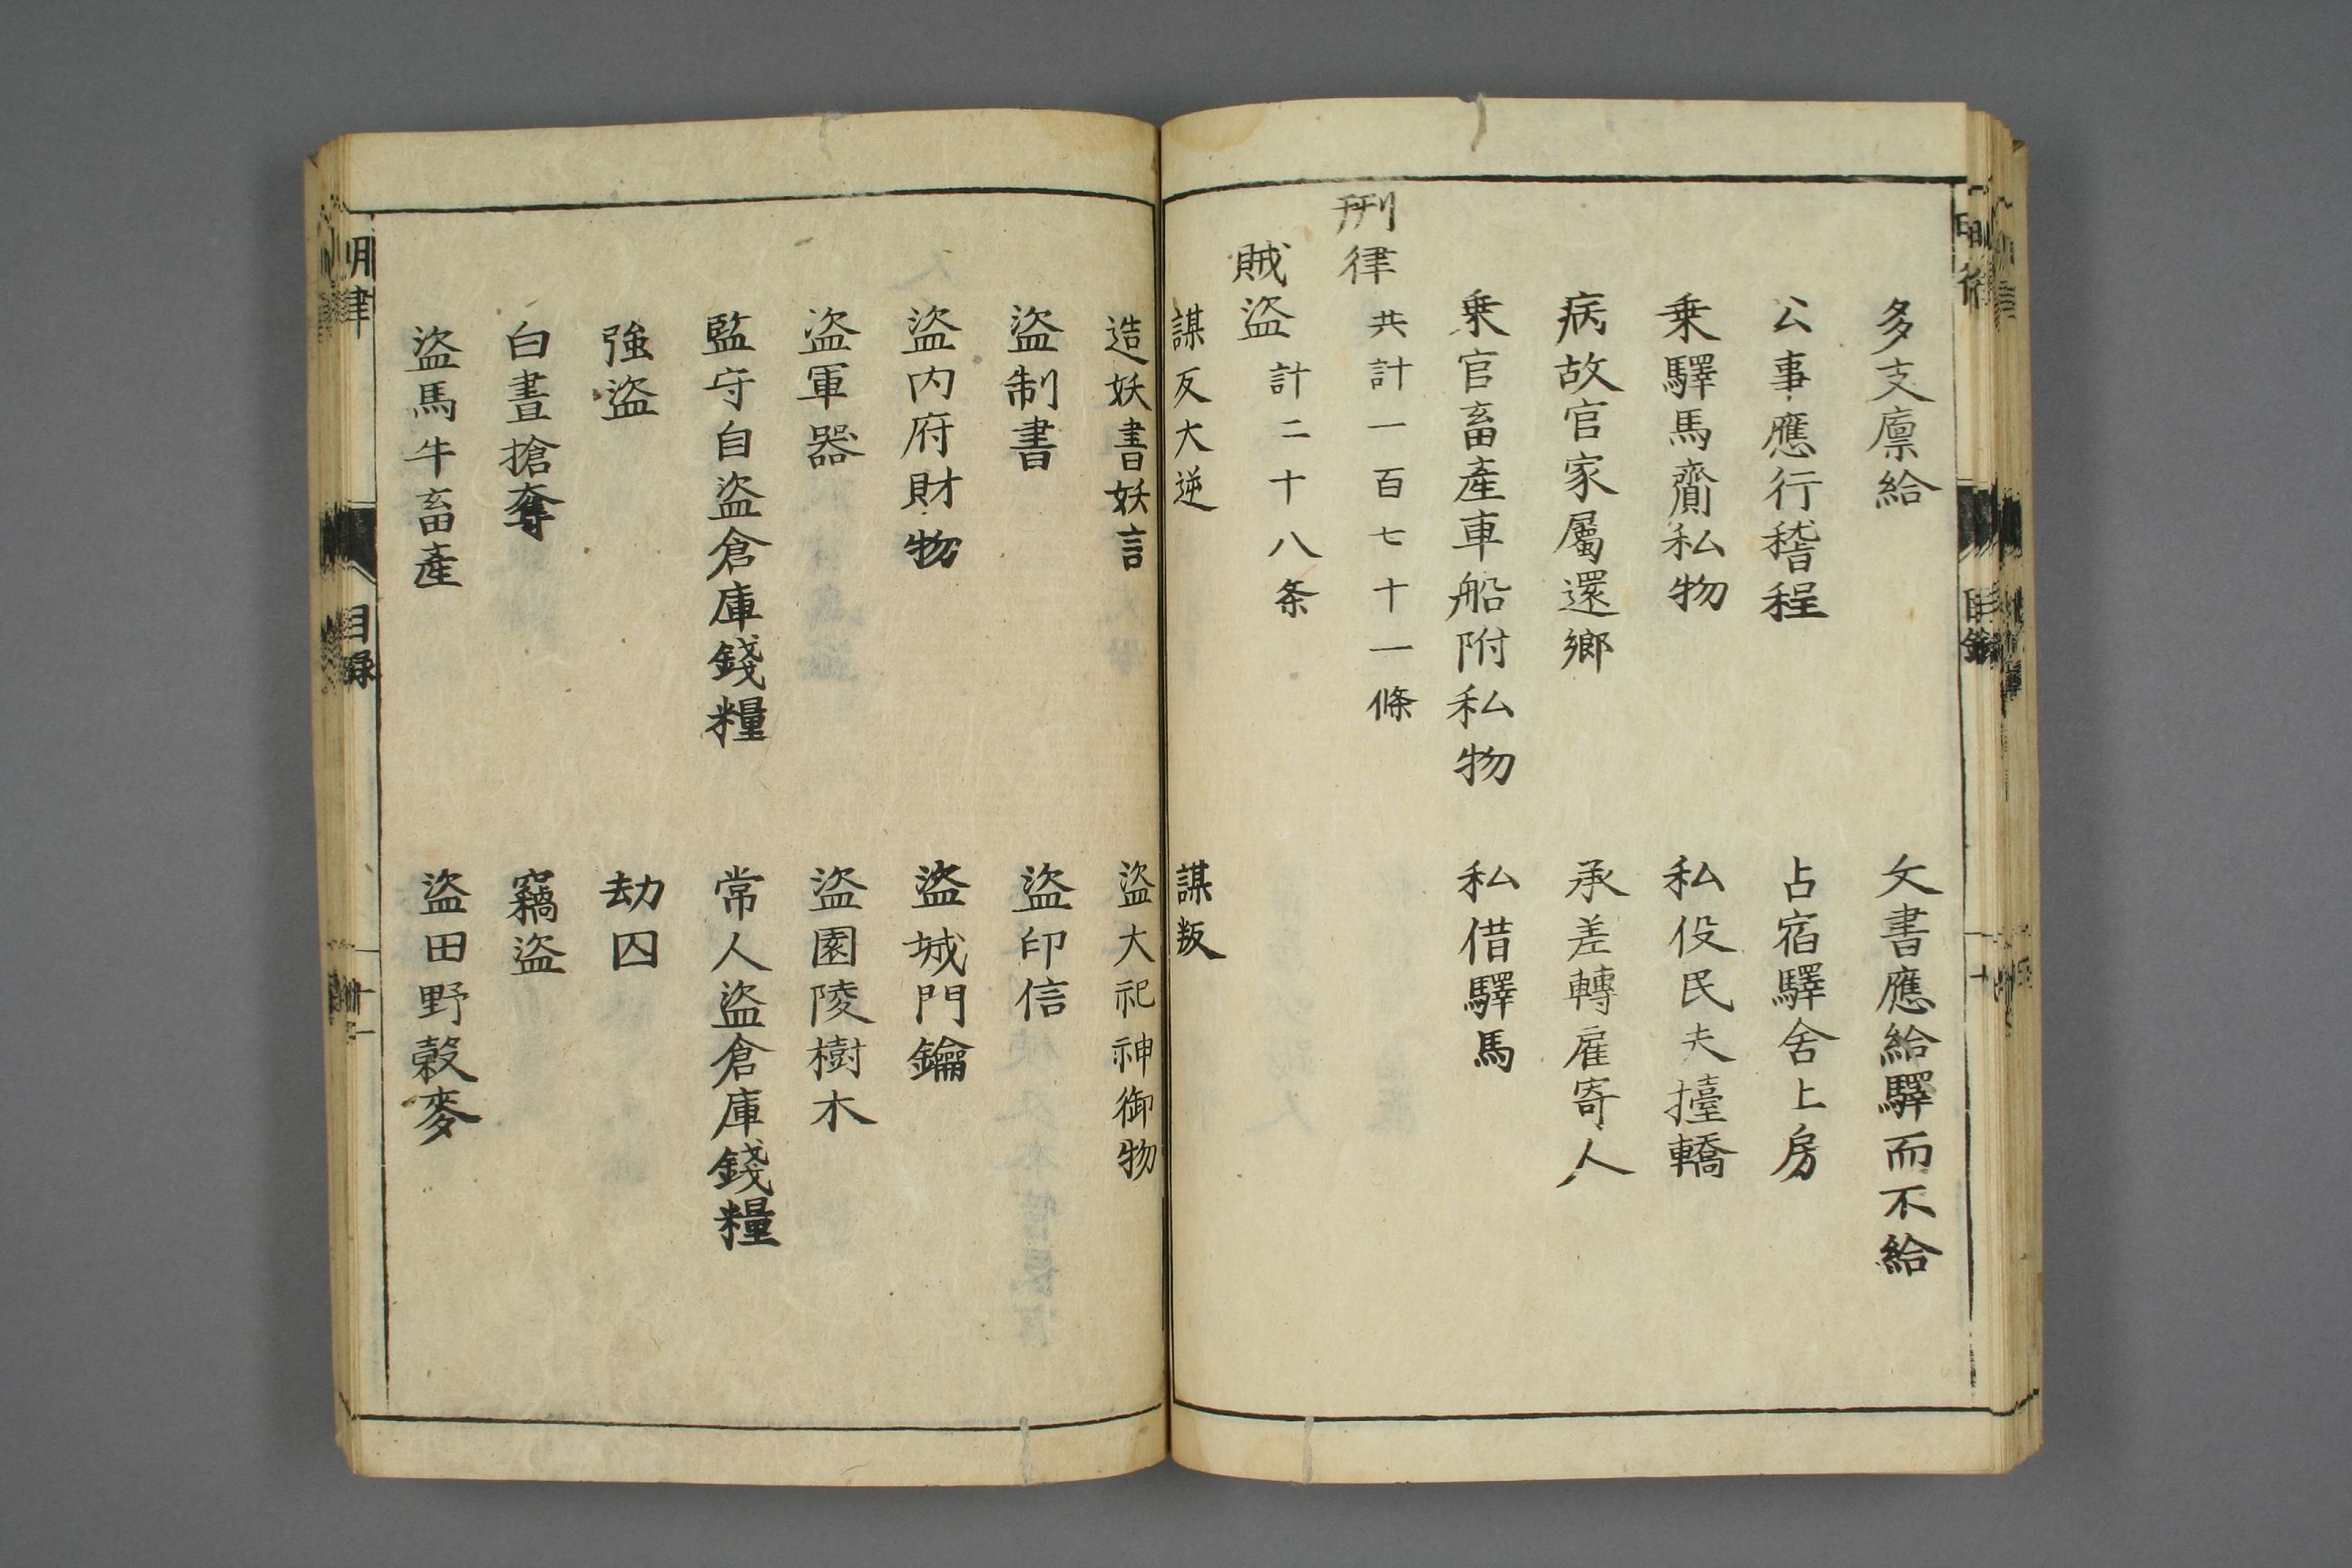 多支廪給　文書應給驛而不給
公事應行稽程　占宿驛舍上房
乗驛馬齎私物　私役民夫擡轎
病故官家屬還鄉　承差轉雇寄人
乗官畜産車船附私物　私借驛馬
刑律 共計一百七十一條
賊盗 計二十八条
謀反大逆　謀叛
造妖書妖言　盗大祀神御物
盗制書　盗印信
盗内府財物　盗城門鑰
盗軍器　盗園陵樹木
監守自盗倉庫錢糧　常人盗倉庫錢糧
強盗　劫囚
白晝搶奪　竊盗
盗馬牛畜産　盗田野穀麥
明律　目録